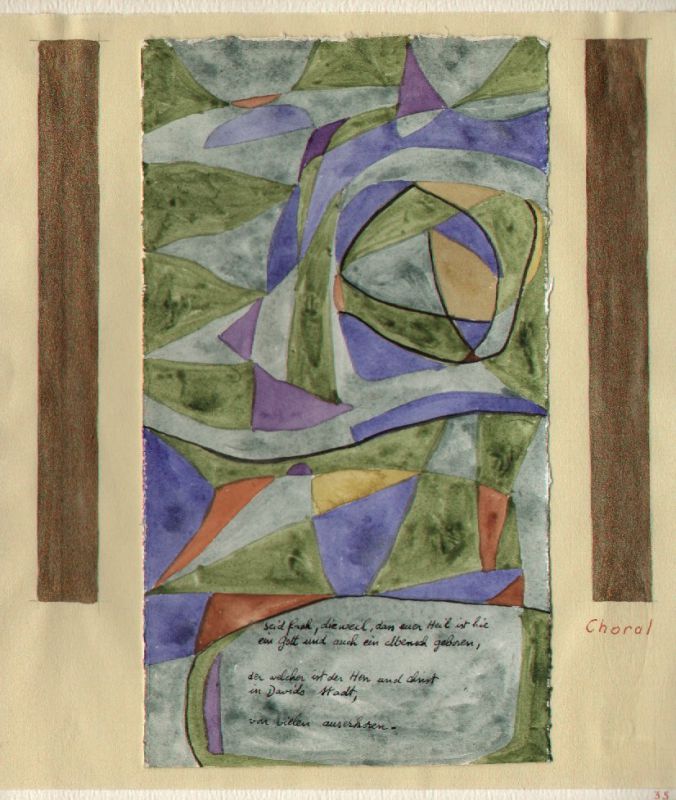 seid froh, dieweil, dass euer Heil ist hie
ein Gott und auch ein Mensch geboren,
der welcher ist der Herr und Christ
in Davids Stadt,
von vielen auserkoren.
Choral
35